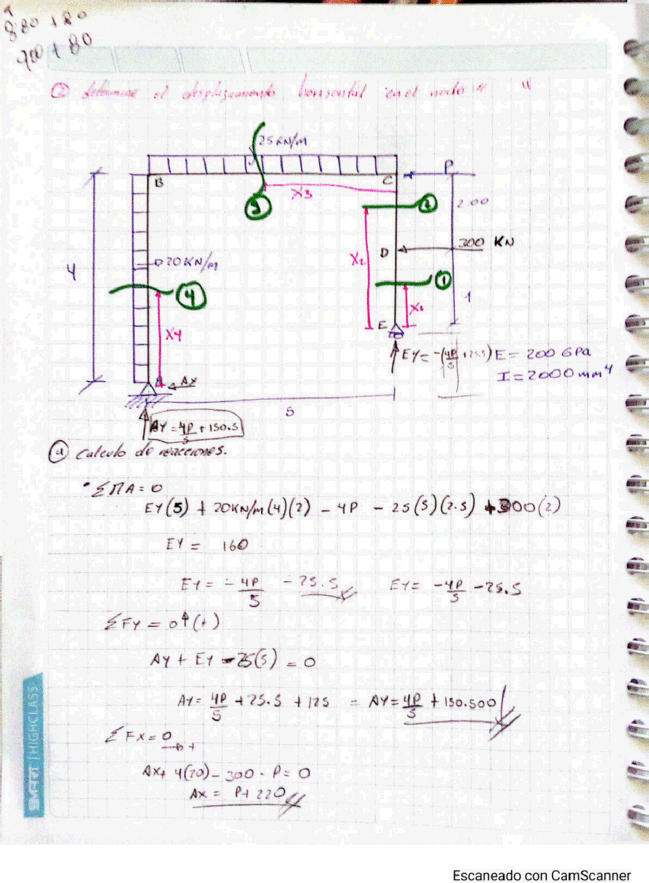 880 + 80
700 + 80
② determine el desplazamiento horizontal en el nodo " "
25KN/m
B
C
P
X3
③
②
2.00
X2
D
300 KN
20KN/m
4
④
①
X1
1
X4
E
AX
EY = -(4P/5 + 25.5)
E = 200 GPa
I = 2000 mm⁴
5
AY = 4P/5 + 150.5
ⓐ Calculo de reacciones.
• ΣMA = 0
EY(5) + 20KN/m(4)(2) - 4P - 25(5)(2.5) + 300(2)
EY = 160
EY = -4P/5 - 25.5 EY = -4P/5 - 25.5
ΣFY = 0↑(+)
AY + EY - 25(5) = 0
AY = 4P/5 + 25.5 + 125 = AY = 4P/5 + 150.500
ΣFX = 0 → +
AX + 4(20) - 300 - P = 0
AX = P + 220
HIGHCLASS
Escaneado con CamScanner